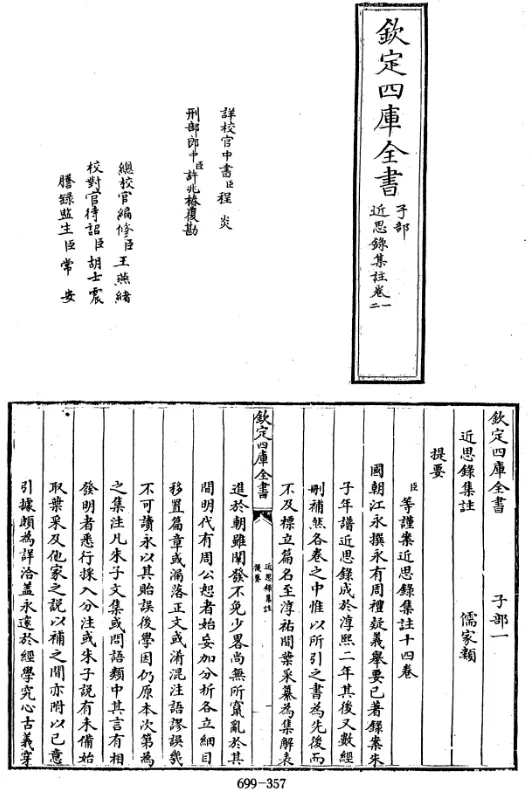 欽定四庫全書
子部
近思錄集註卷一
二
詳校官中書臣程炎
刑部郎中臣許兆椿覆勘
總校官編修臣王燕緒
校對官待詔臣胡士震
謄錄監生臣常安
欽定四庫全書 子部一
近思錄集註 儒家類
提要
臣等謹案近思錄集註十四卷
國朝江永撰永有周禮疑義舉要已著錄案朱
子年譜近思錄成於淳熙二年其後又數經
刪補然各卷之中惟以所引之書為先後而
不及標立篇名至淳祐間葉采纂為集解表
欽定四庫全書
近思錄集註
提要
進於朝雖闡發不免少畧尚無所竄亂於其
間明代有周公恕者始妄加分析各立細目
移置篇章或漏落正文或淆混注語謬誤幾
不可讀永以其貽誤後學因仍原本次第為
之集注凡朱子文集或問語類中其言有相
發明者悉行採入分注或朱子說有未備始
取葉采及他家之說以補之間亦附以已意
引據頗為詳洽蓋永邃於經學究心古義穿
699-357